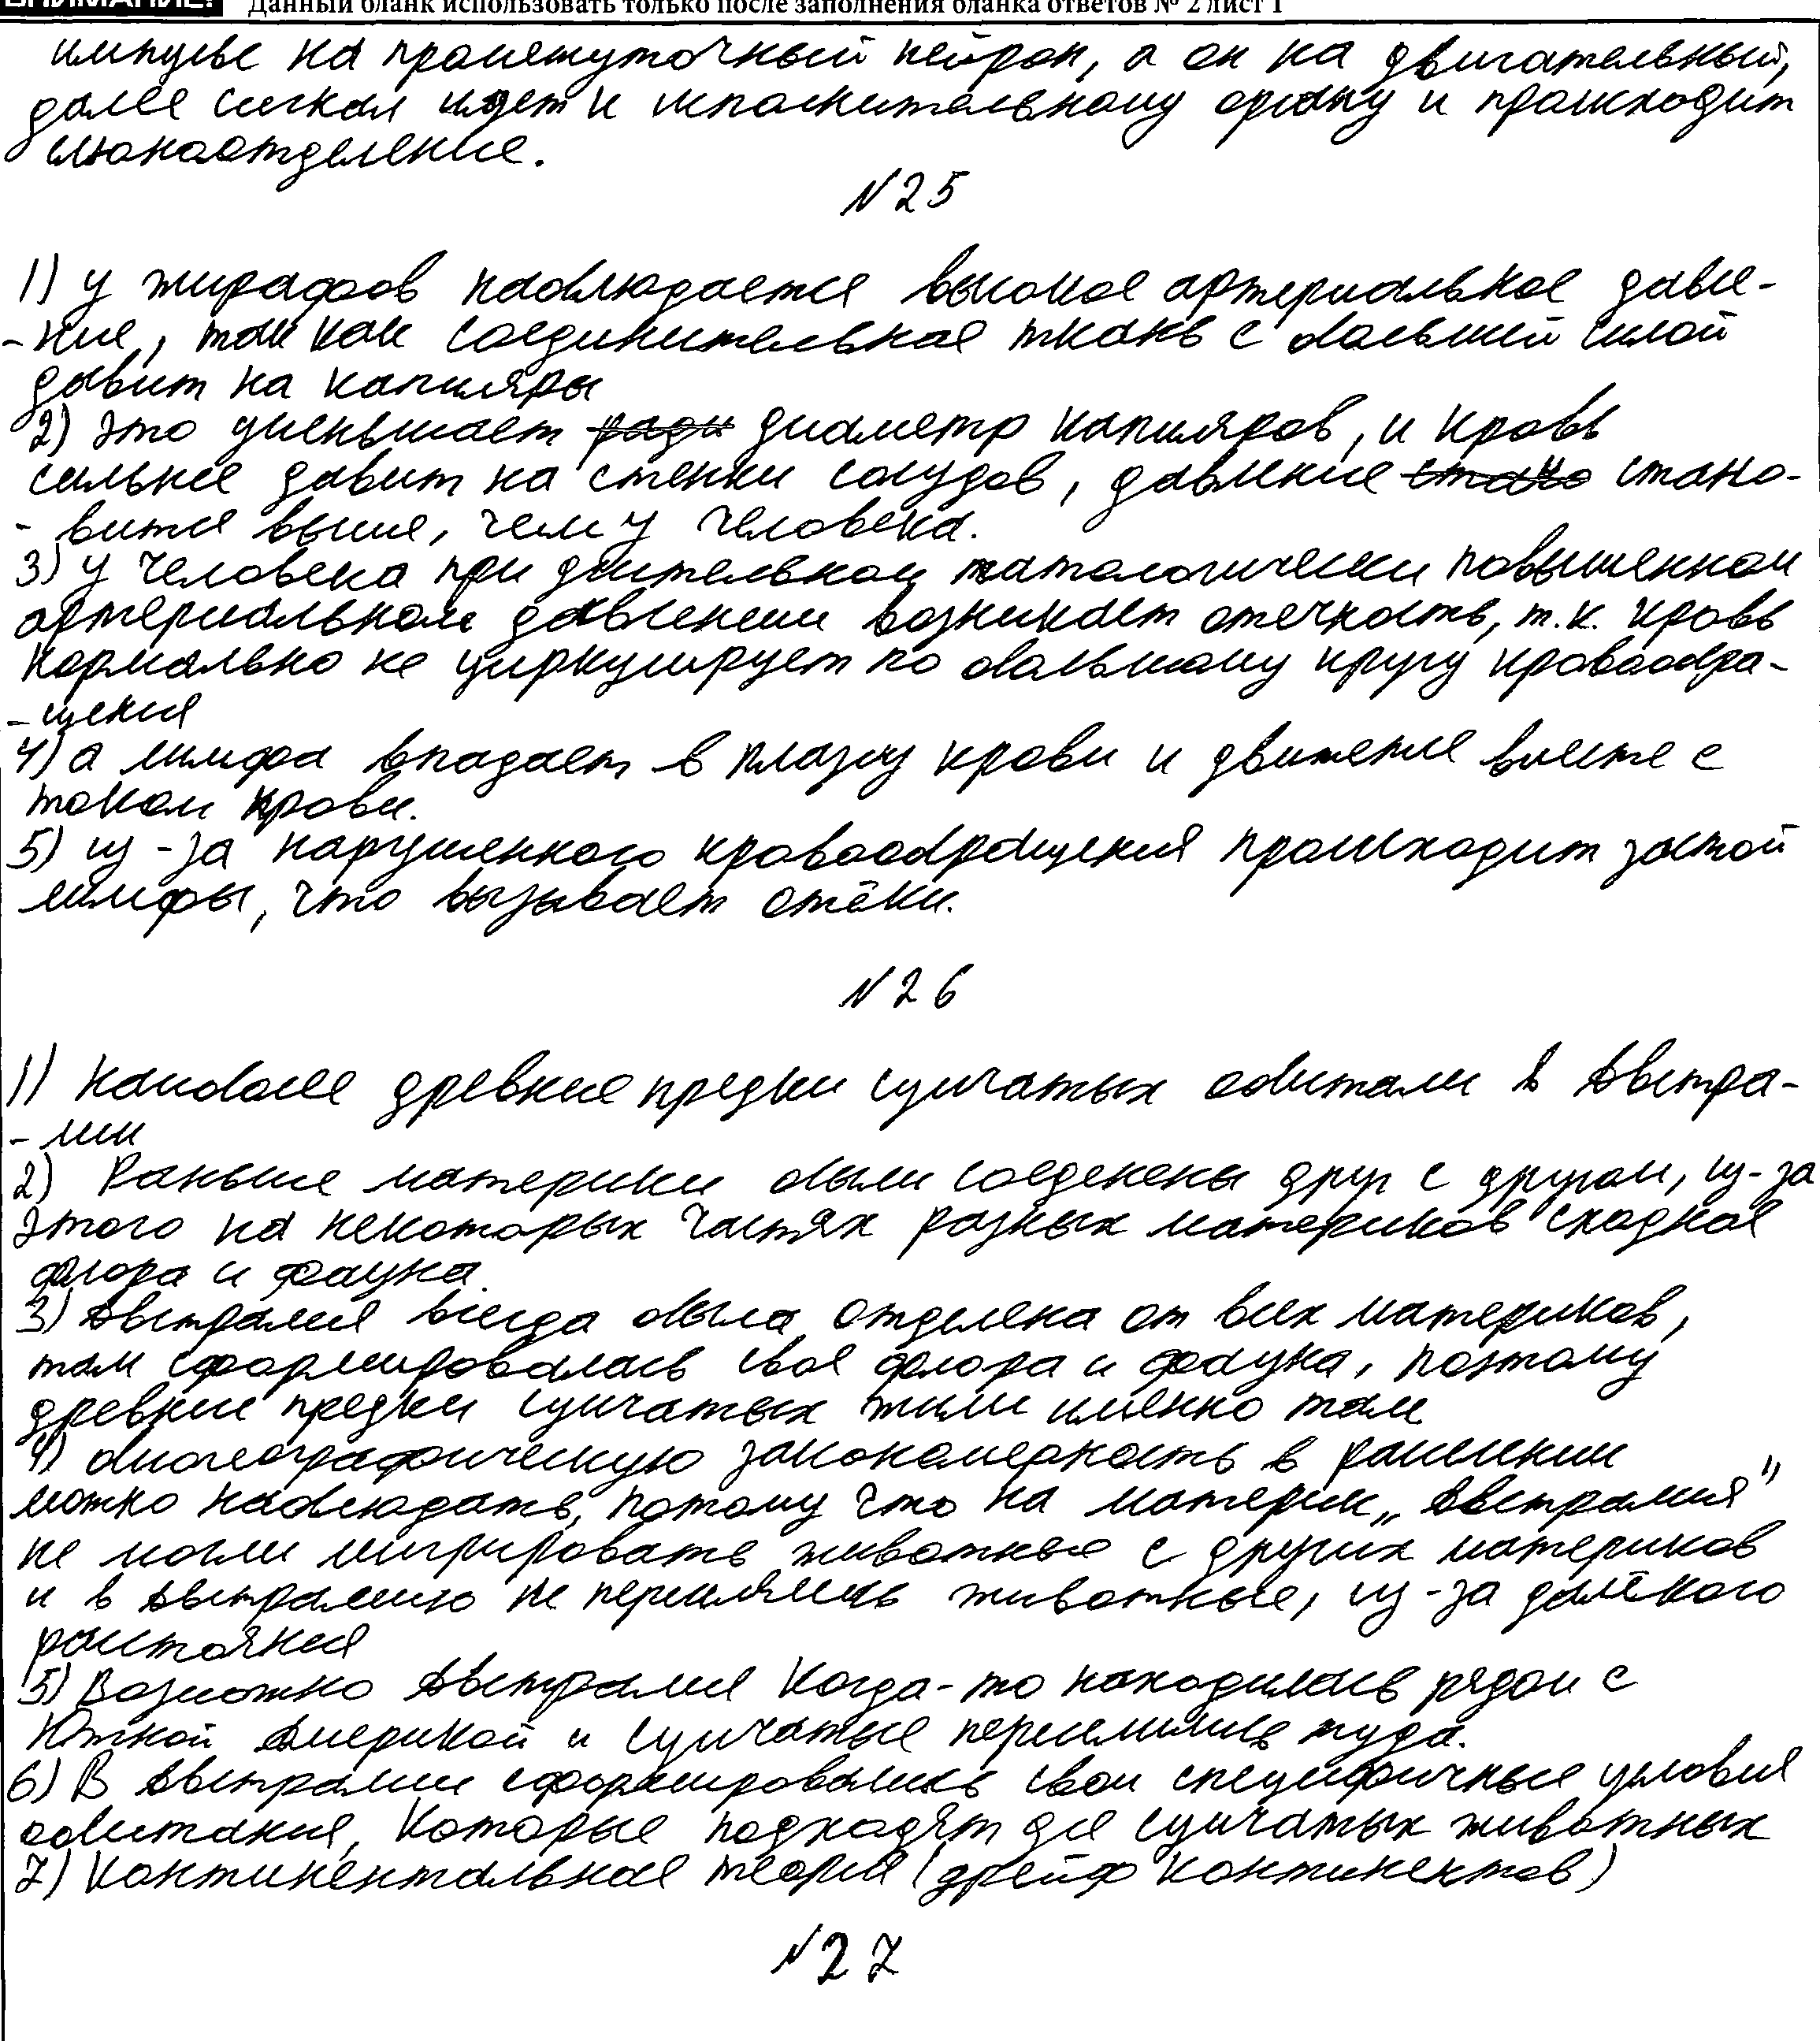 ВНИМАНИЕ! Данный бланк использовать только после заполнения бланка ответов № 2 лист 1
импульс на промежуточный нейрон, а он на двигательный,
далее сигнал идет к исполнительному органу и происходит
слюноотделение.
№25
1) у жирафов наблюдается высокое артериальное давле-
-ние, так как соединительная ткань с большей силой
давит на капиляры
2) это уменьшает ради диаметр капиляров, и кровь
сильнее давит на стенки сосудов, давление стано стано-
-вится выше, чем у человека.
3) у человека при длительном патологически повышенном
артериальном давлении возникает отечность, т.к. кровь
нормально не циркулирует по большому кругу кровообра-
-щения
4) а лимфа впадает в плазму крови и движется вместе с
током крови.
5) из-за нарушенного кровообращения происходит застой
лимфы, что вызывает отёки.
№26
1) Наиболее древние предки сумчатых обитали в Австра-
-лии
2) Раньше материки были соеденены друг с другом, из-за
этого на некоторых частях разных материков сходная
флора и фауна
3) Австралия всегда была отделена от всех материков,
там сформировалась своя флора и фауна, поэтому
древние предки сумчатых жили именно там
4) биогеографическую закономерность в расселении
можно наблюдать, потому что на материк „Австралия"
не могли мигрировать животные с других материков
и в Австралию не переселялись животные, из-за далёкого
расстояния
5) Возможно Австралия когда-то находилась рядом с
Южной Америкой и сумчатые переселились туда.
6) В Австралии сформировались свои специфичные условия
обитания, которые подходят для сумчатых животных
7) Континентальная теория (дрейф континентов)
№27